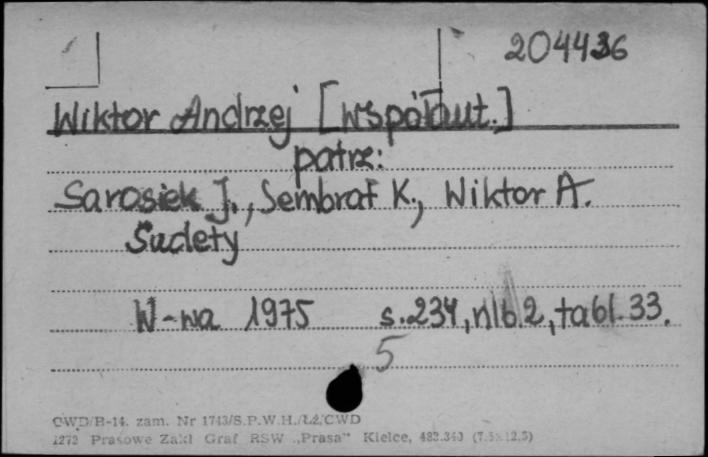 204436
Wiktor Andrzej [współaut.]
patrz:
Sarosiek J., Sembrat K., Wiktor A.
Sudety
W-wa 1975 s.234, nlb.2, tabl.33.
5
CWD/B-14. zam. Nr 1743/S.P.W.H./Łż/CWD
1272 Prasowe Zakł Graf RSW „Prasa” Kielce,